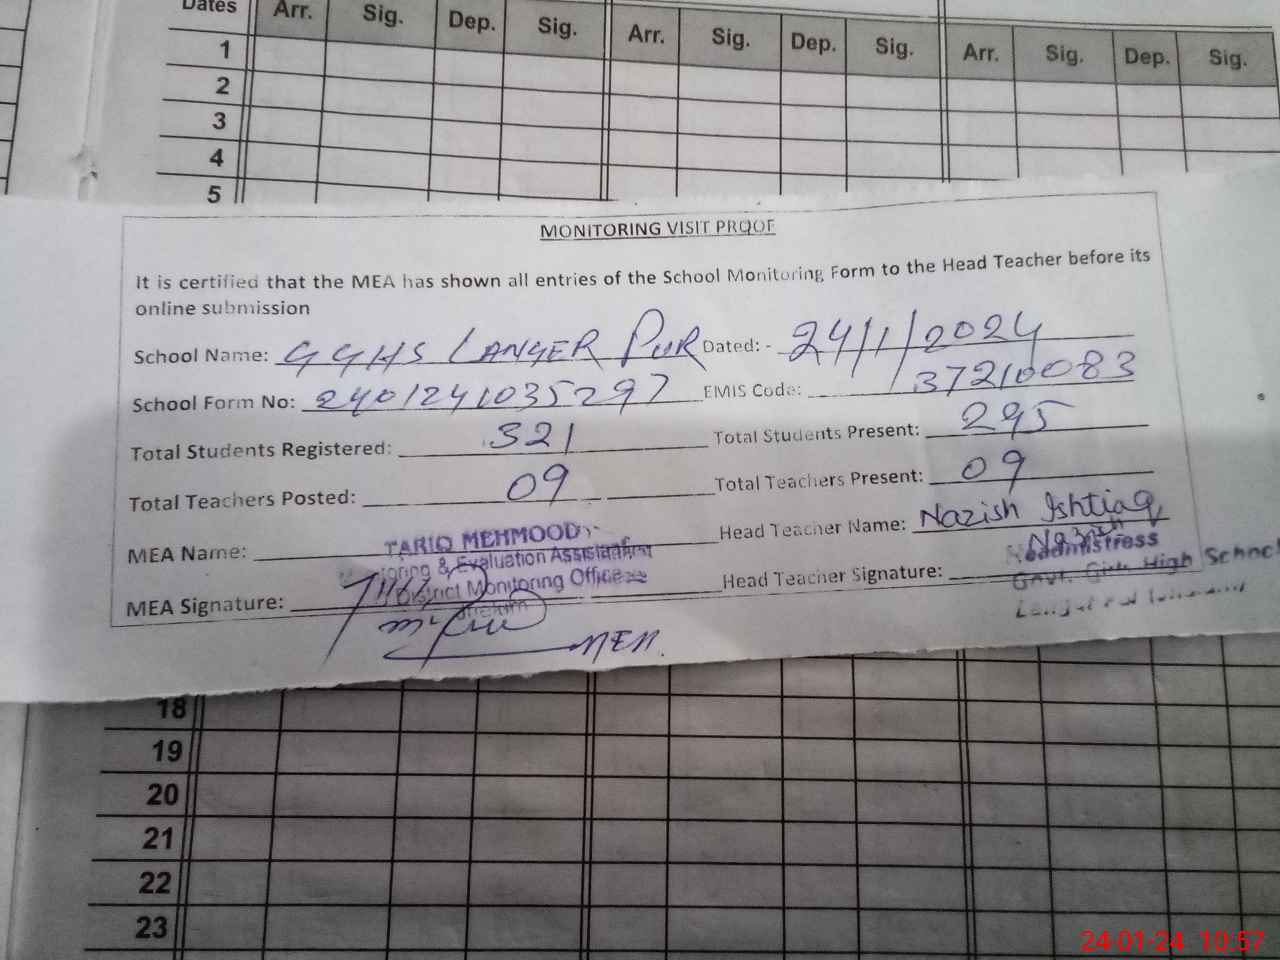 Dates Arr. Sig. Dep. Sig. Arr. Sig. Dep. Sig. Arr. Sig. Dep. Sig.
1
2
3
4
5
MONITORING VISIT PROOF
It is certified that the MEA has shown all entries of the School Monitoring Form to the Head Teacher before its
online submission
School Name: GGHS LANGER PUR Dated: - 24/1/2024
School Form No: 2401241035297 EMIS Code: 37210083
Total Students Registered: 321 Total Students Present: 295
Total Teachers Posted: 09 Total Teachers Present: 09
MEA Name: TARIQ MEHMOOD Head Teacher Name: Nazish Ishtiaq
& Evaluation Assistant
District Monitoring Office
MEA Signature: Head Teacher Signature: Nazish
Headmistress
Govt. Girls High School
MEA.
18
19
20
21
22
23
24-01-24 10:57